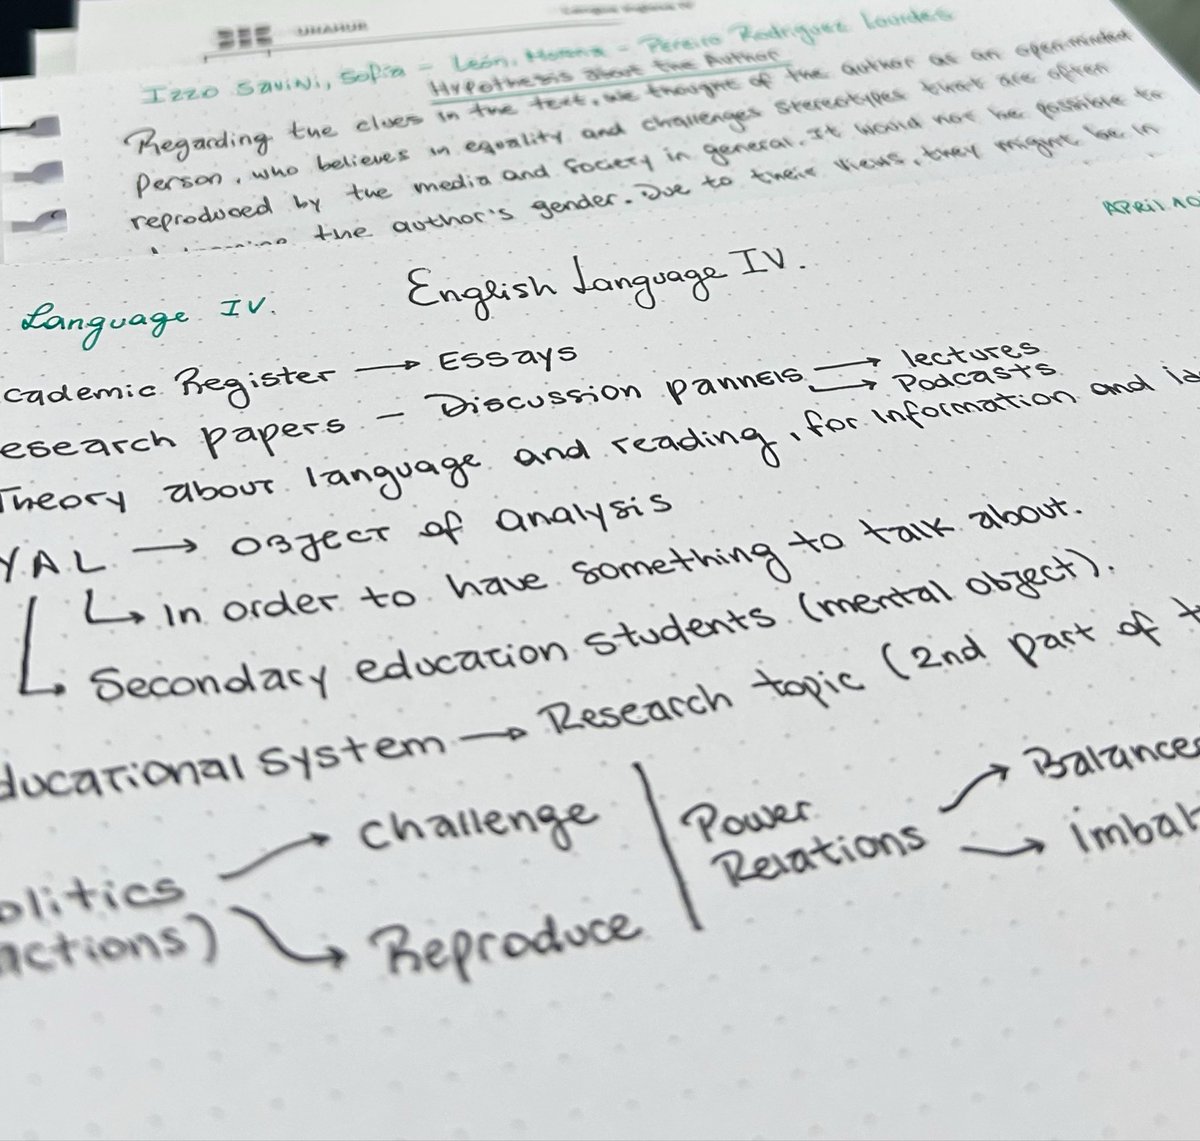 UNAHUR
Izzo Savini, Sofía - León, Morena - Pereiro Rodriguez Lourdes
Hypothesis about the Author
Regarding the clues in the text, we thought of the author as an open-minded
person, who believes in equality and challenges stereotypes that are often
reproduced by the media and society in general. It would not be possible to
the author's gender. Due to their views, they might be in
April 10
Language IV.
English Language IV.
cademic Register → Essays
esearch papers - Discussion pannels → lectures
→ Podcasts
Theory about language and reading, for information and id
YAL → object of analysis
↳ in order to have something to talk about.
↳ Secondary education students (mental object).
ducational system → Research topic (2nd part of t
olitics → challenge
actions) → Reproduce
Power Relations → Balance
→ imbal